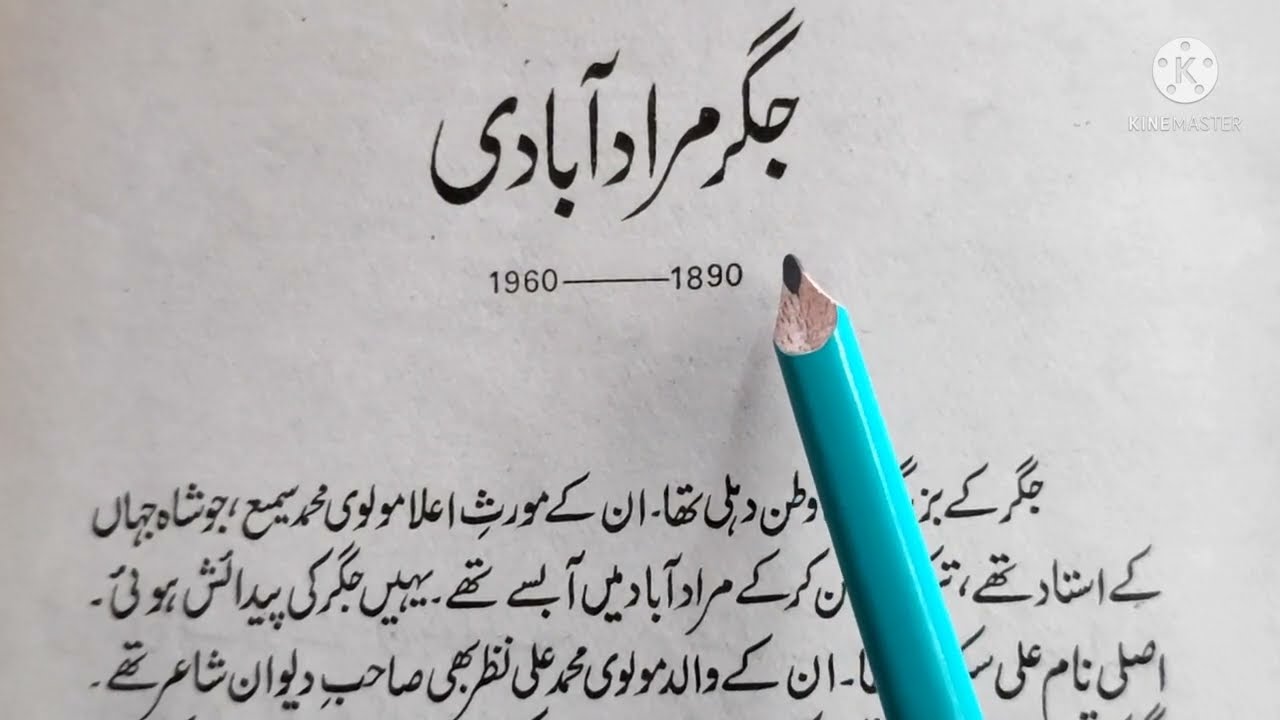 جگر مراد آبادی
1890 — 1960
جگر کے وطن دہلی تھا۔ ان کے مورثِ اعلا مولوی محمد سمیع، جو شاہ جہاں
کے استاد تھے، کر کے مراد آباد میں آبسے تھے۔ یہیں جگر کی پیدائش ہوئی۔
اصلی نام علی ان کے والد مولوی محمد علی نظر بھی صاحبِ دیوان شاعر تھے۔
KINEMASTER